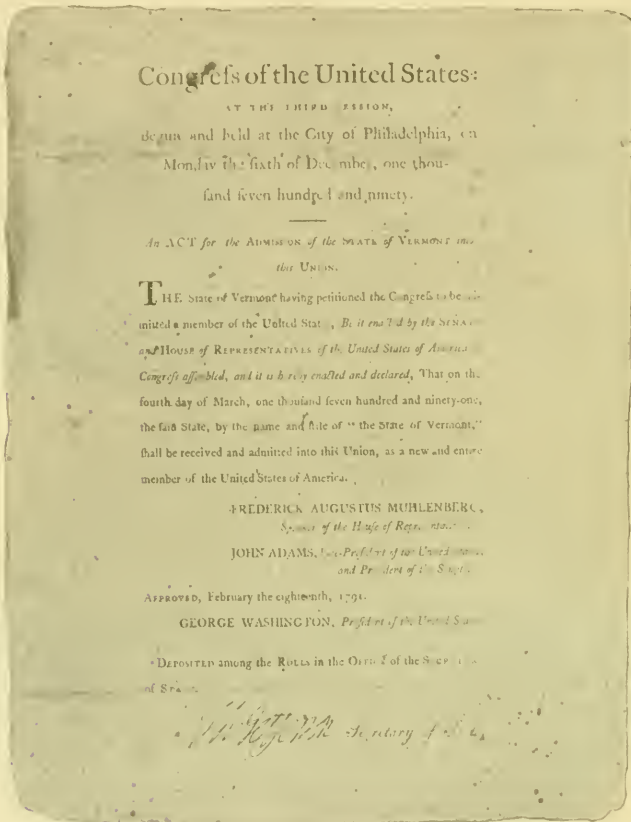 Congreſs of the United States:
AT THE THIRD SESSION,
Begun and held at the City of Philadelphia, on
Monday the ſixth of December, one thou-
ſand ſeven hundred and ninety.
An ACT for the ADMISSION of the STATE of VERMONT into
this UNION.
THE State of Vermont having petitioned the Congreſs to be ad-
mitted a member of the United States, Be it enacted by the SENATE
and HOUSE of REPRESENTATIVES of the United States of America
Congreſs aſſembled, and it is hereby enacted and declared, That on the
fourth day of March, one thouſand ſeven hundred and ninety-one,
the ſaid State, by the name and ſtile of “ the State of Vermont,”
ſhall be received and admitted into this Union, as a new and entire
member of the United States of America.
FREDERICK AUGUSTUS MUHLENBERG,
Speaker of the Houſe of Repreſentatives.
JOHN ADAMS, Vice-Preſident of the United States,
and Preſident of the Senate.
APPROVED, February the eighteenth, 1791.
GEORGE WASHINGTON, Preſident of the United States
DEPOSITED among the ROLLS in the OFFICE of the SECRETARY
of STATE.
Secretary of